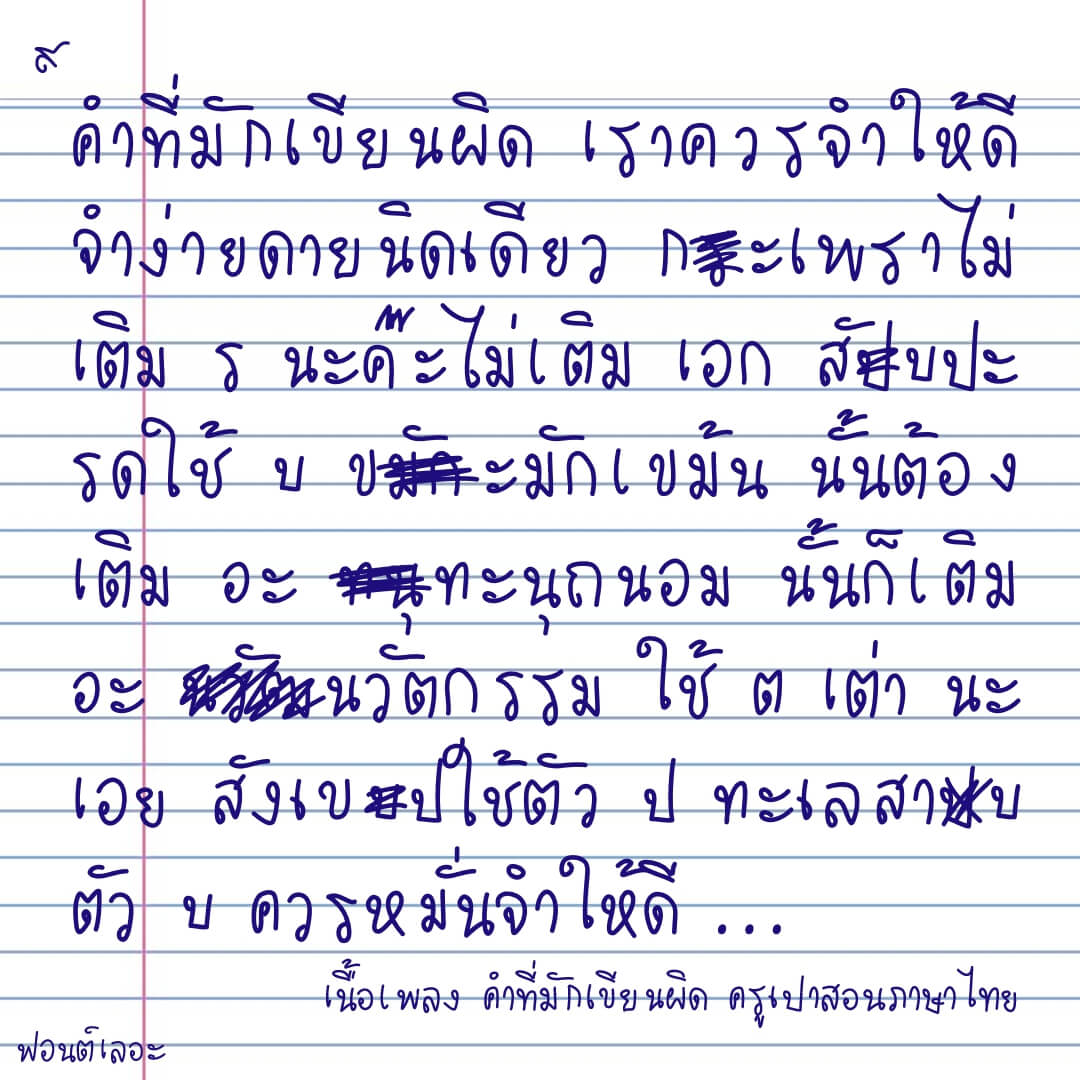 ส
คำที่มักเขียนผิด เราควรจำให้ดี
จำง่ายดายนิดเดียว กะเพราไม่
เติม ร นะคะไม่เติม เอก สับปะ
รดใช้ บ ขะมักเขม้น นั้นต้อง
เติม อะ ทะนุถนอม นั้นก็เติม
อะ นวัตกรรม ใช้ ต เต่า นะ
เอย สังเขปใช้ตัว ป ทะเลสาบ
ตัว บ ควรหมั่นจำให้ดี ...
เนื้อเพลง คำที่มักเขียนผิด ครูเปาสอนภาษาไทย
ฟอนต์เลอะ